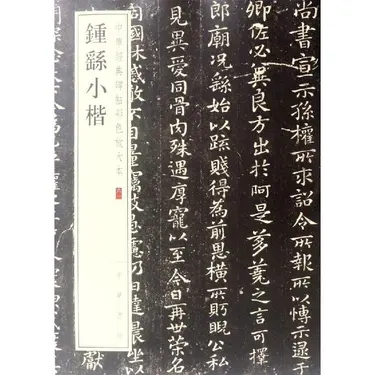 尚書宣示孫權所求詔令所報所以博示逮于
卿佐必冀良方出於阿是芻蕘之言可擇
郎廟況繇始以疏賤得為前恩橫所盼睨公私
見異愛同骨肉殊遇厚寵以至今日再世榮名
同國休慼敢不自量竊致愚慮仍日達晨坐以
中華經典碑帖彩色放大本
鍾繇小楷
中華書局
獻